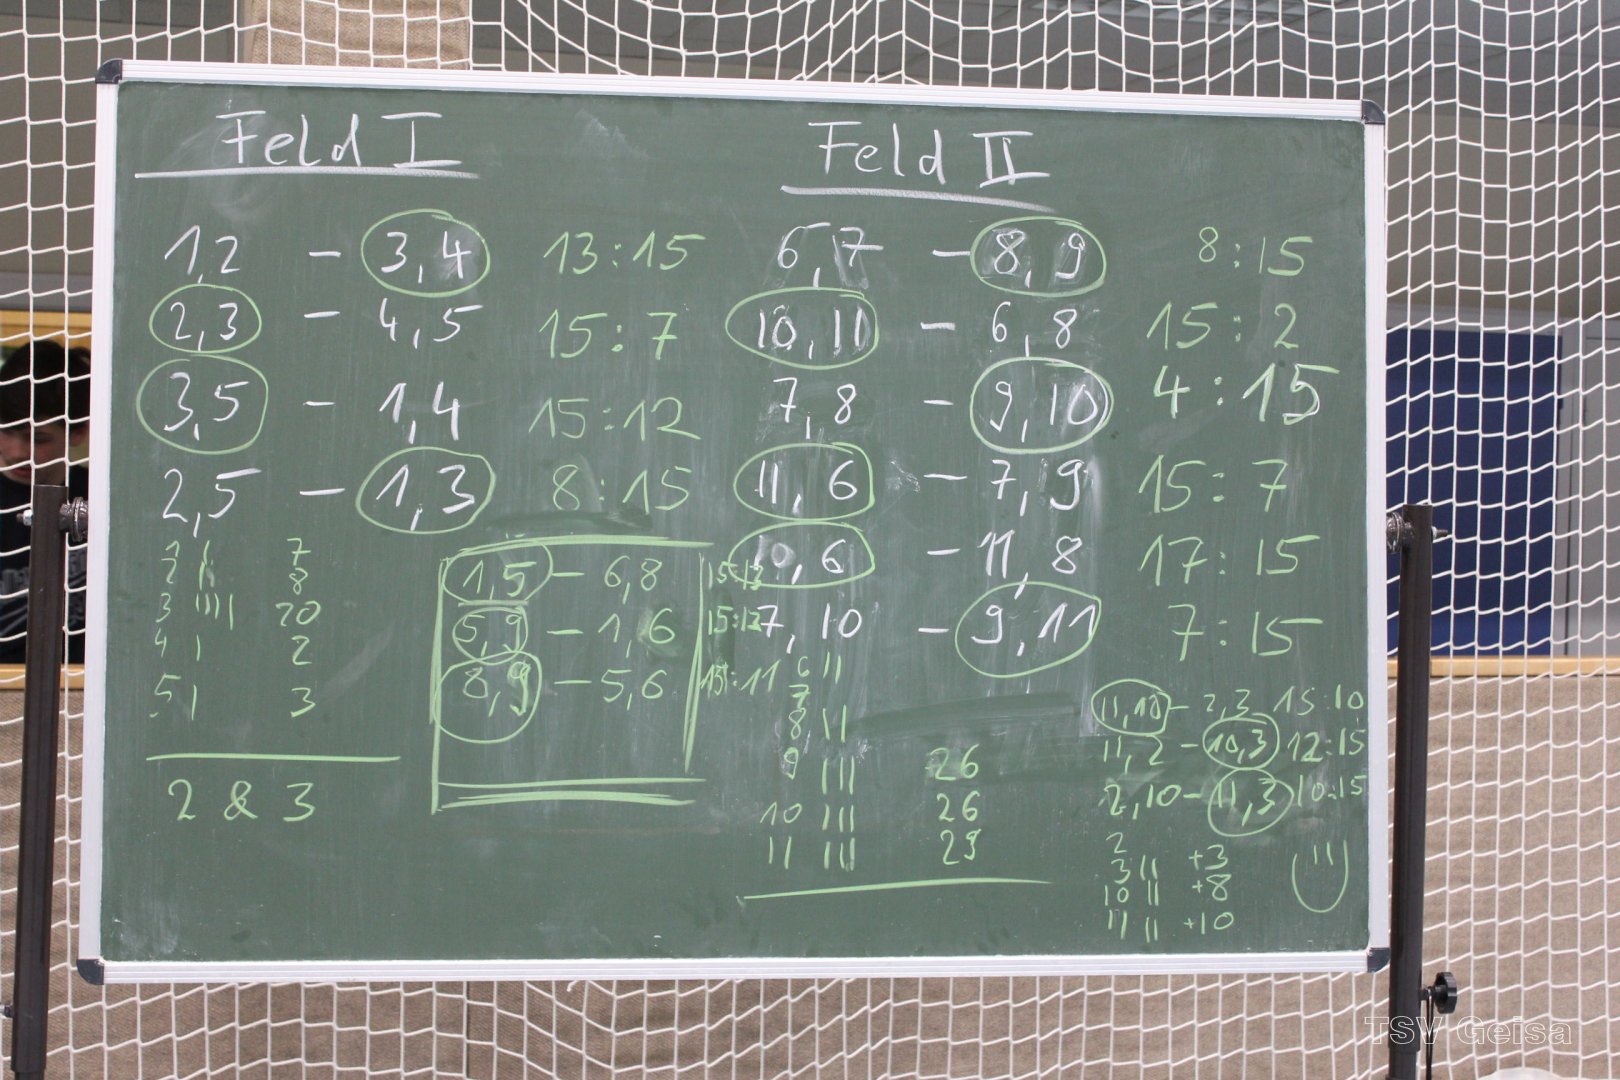 Feld I
1,2 - 3,4 13:15
2,3 - 4,5 15:7
3,5 - 1,4 15:12
2,5 - 1,3 8:15
1 | 7
2 | 8
3 |||| 20
4 | 2
5 | 3
2 & 3
1,5 - 6,8 15:13
5,9 - 1,6 15:12
8,9 - 5,6 :11
Feld II
6,7 - 8,9 8:15
10,11 - 6,8 15:2
7,8 - 9,10 4:15
11,6 - 7,9 15:7
,6 - 11,8 17:15
7,10 - 9,11 7:15
6 ||
7
8 ||
9 ||| 26
10 ||| 26
11 |||| 29
11,10 - 2,3 15:10
11,2 - 10,3 12:15
2,10 - 11,3 10:15
2
3 || +3
10 || +8
11 || +10
TSV Geisa